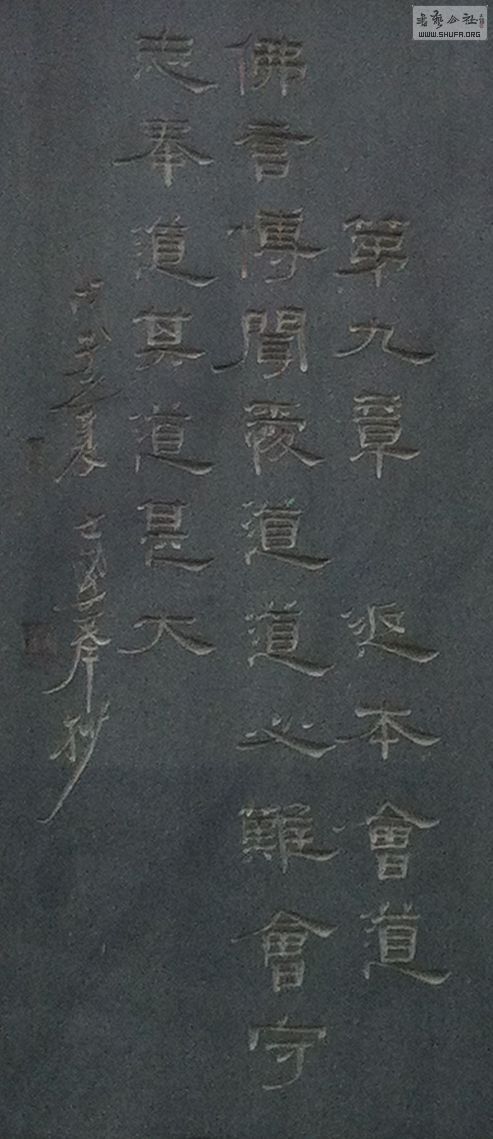 第九章 返本會道
佛言博聞愛道道必難會守
志奉道其道甚大
子夏
奉抄
書藝公社
WWW.SHUFA.ORG